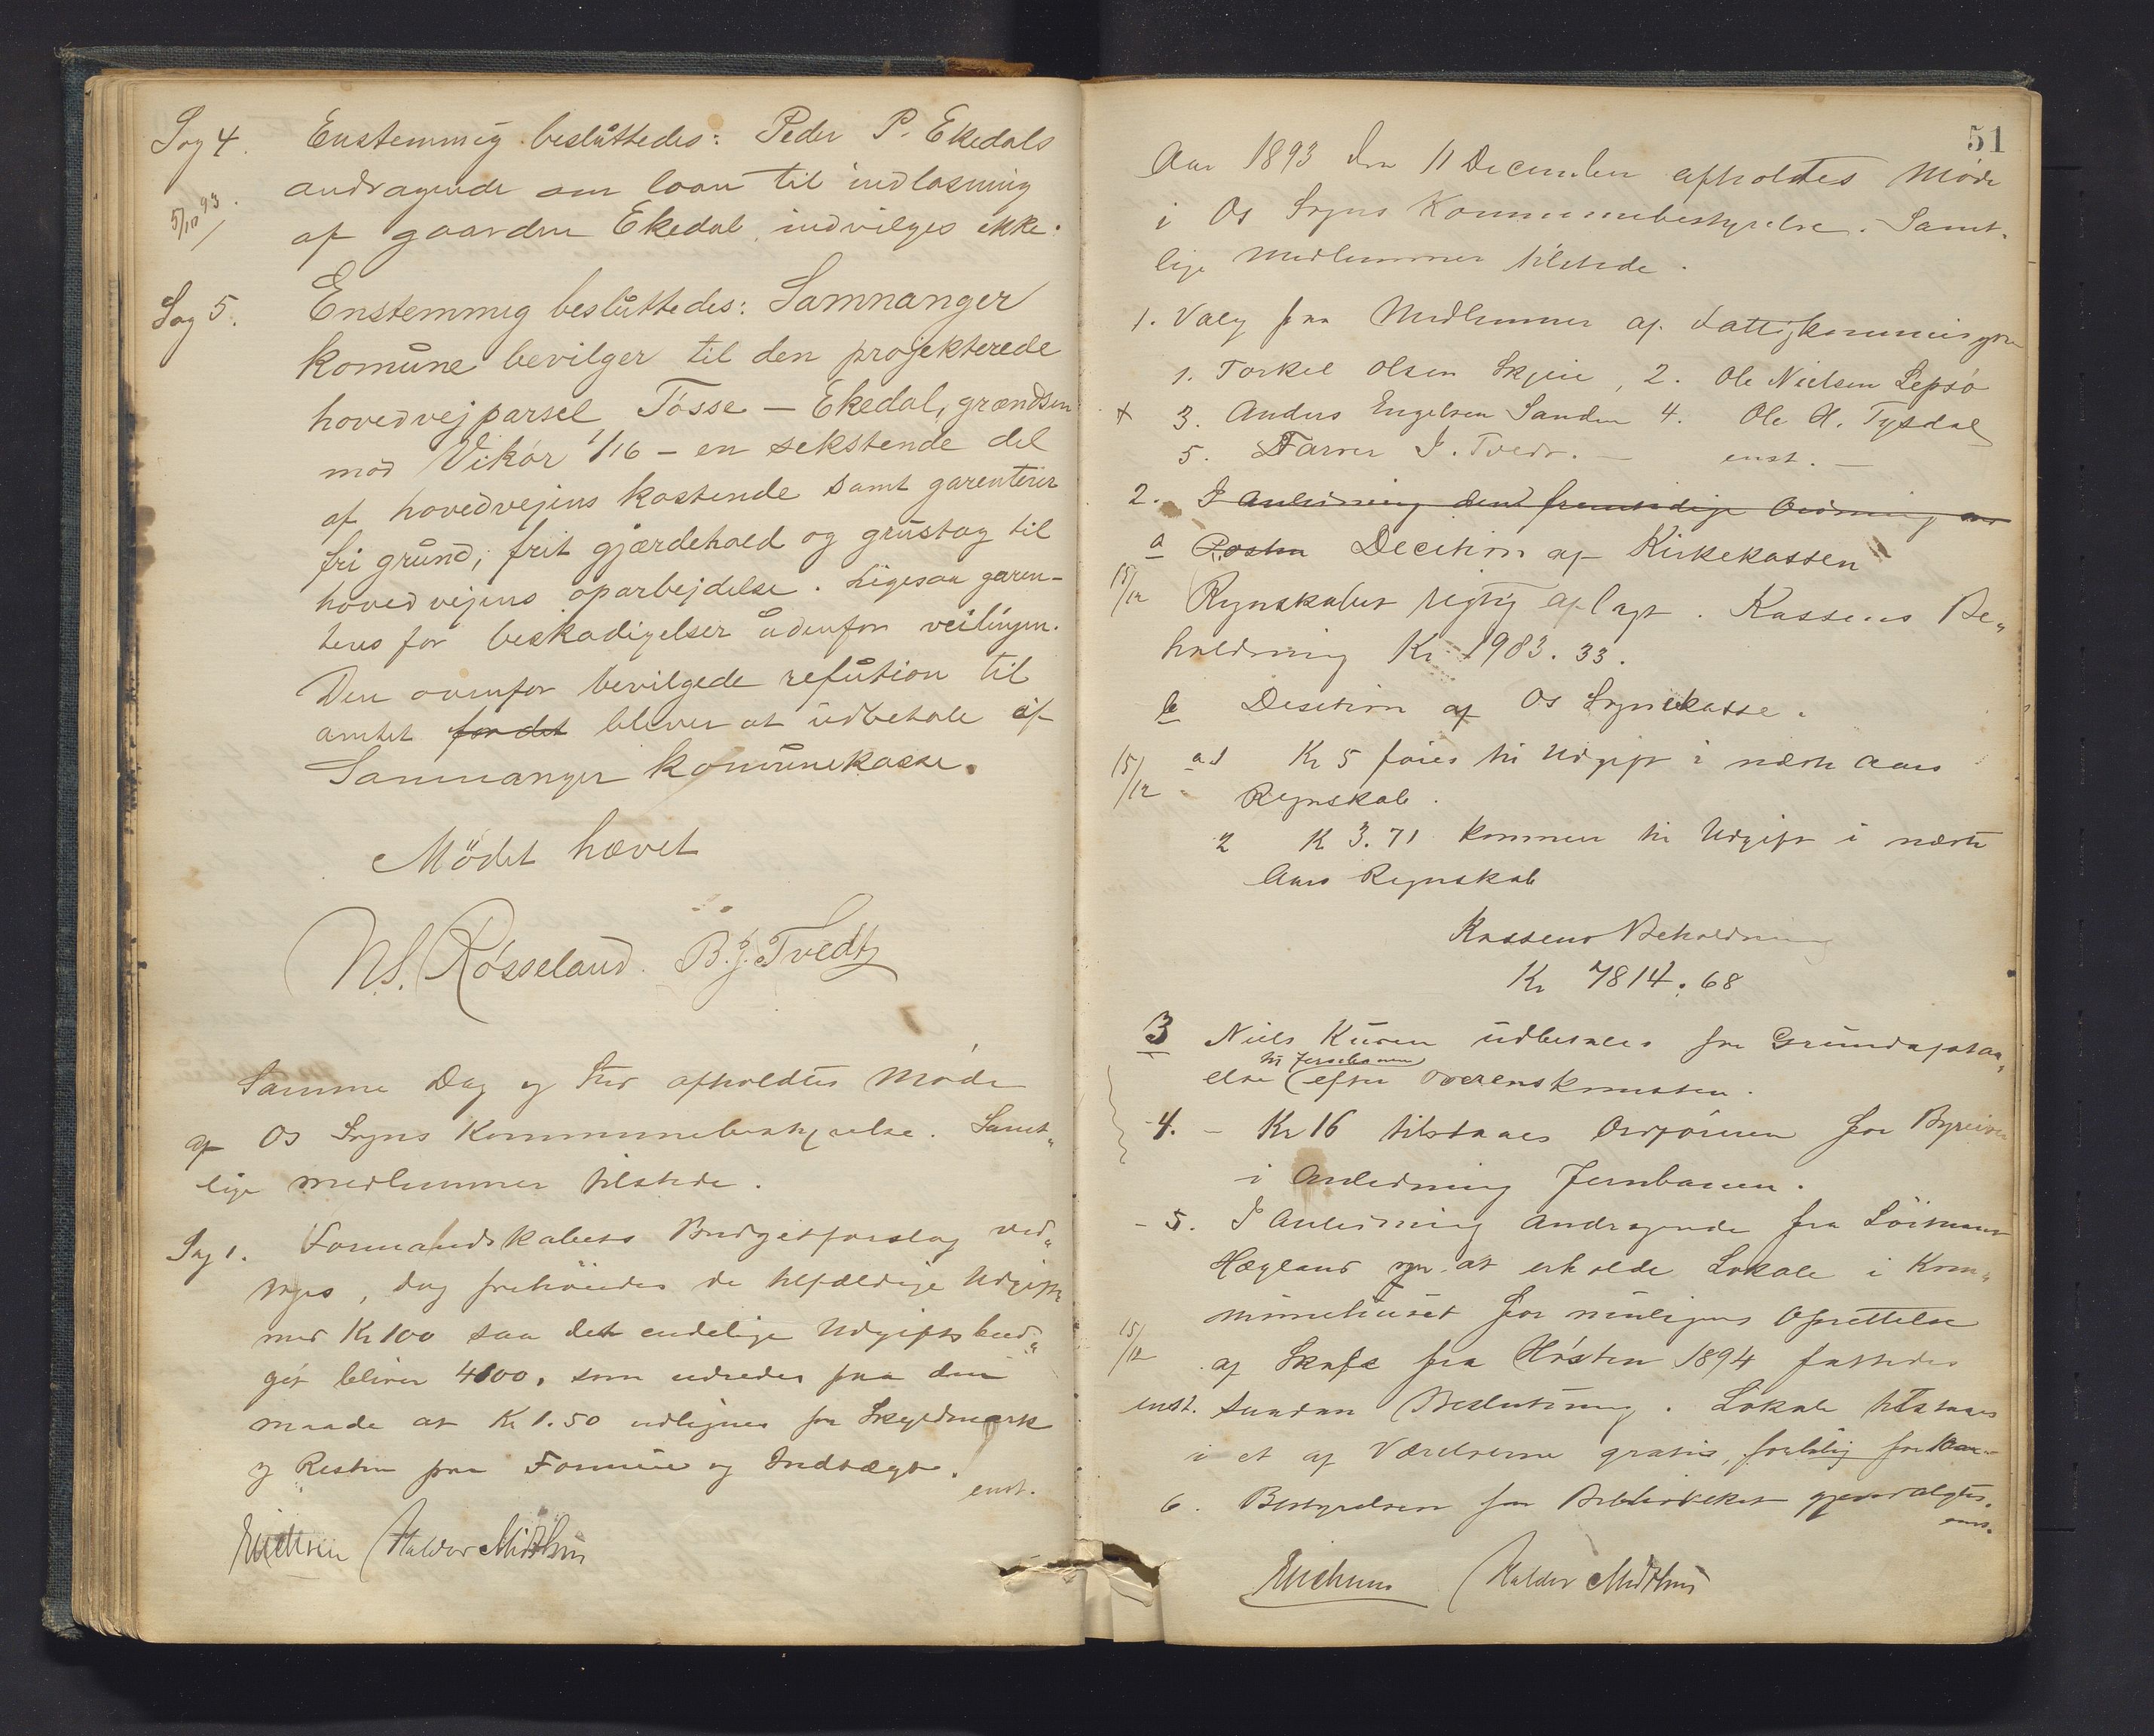 Sag 4. Enstemmig beslüttedes: Peder P. Ekedals
andragende om laan til indløsning
5/10 93. af gaarden Ekedal indvilges ikke.
Sag 5. Enstemmig beslüttedes: Samnanger
komüne bevilger til den projekterede
hovedvejparsel Tösse – Ekedal, grændsen
mod Vikör 1/16 – en sekstende del
af hovedvejens kostende samt garenterer
fri gründ, frit gjærdehold og grüstag til
hovedvejens oparbejdelse. Ligesaa garen-
teres for beskadigelser üdenfor veilinjen.
Den ovenfor bevilgede refüsion til
amtet for det bliver at üdbetale af
Samnanger komünekasse.
Mödet hævet
N.S. Røsseland. B.J. Tvedt
Samme Dag og Sted afholdtes Møde
af Os Sogns Kommunebestyrelse. Samt-
lige medlemmer tilstede.
Sag 1. Formandskabets Budgetforslag ved-
toges, dog forhöiedes de tilfældige Udgifter
med Kr 100 saa det endelige Udgiftsbud-
get bliver 4100, som udredes paa den
maade at Kr 1.50 udlignes pr Skyldmark
og Resten paa Formue og Indtægt.
enst.
Haldor Midthus
51
Aar 1893 den 11 December afholdtes Møde
i Os Sogns Kommunebestyrelse. Samt-
lige Medlemmer tilstede.
1. Valg paa Medlemmer af Fattigkommisjon
1. Torkel Olsen Skjeie, 2. Ole Nielsen Lepsø
x 3. Anders Engelsen Sanden 4. Ole H. Tysdal
5. Farver J. Tvedt. – enst. –
2. I Anledning den fremtidige Ordning
a Posten Decition af Kirkekassen
15/12 Regnskabet rigtig aflagt. Kassens Be-
holdning Kr. 1983.33.
b Desition af Os Sognekasse.
15/12 ad 1 Kr 5 föres til Udgift i næste Aars
Regnskab.
2 K 3.71 kommer til Udgift i næste
Aars Regnskab
Kassens Beholdning
Kr 7814.68
3 Niels Küven üdbetales for Grundafstaa-
til Jernbanen
else efter Overenskomsten.
4. – Kr 16 tilstaaes for
i Anledning Jernbanen.
5. I Anledning Andragende fra Löitnant
Hægland om at erholde Lokale i Kom-
münehüset for müligens Oprettelse
15/12 af Skole fra Hösten 1894 fattedes
enst. saadan Beslutning. Lokale tilstaaes
i et af Værelserne gratis,
6. Bestyrelsen for Bibliotheket gjenvalgtes.
enst.
Haldor Midthus